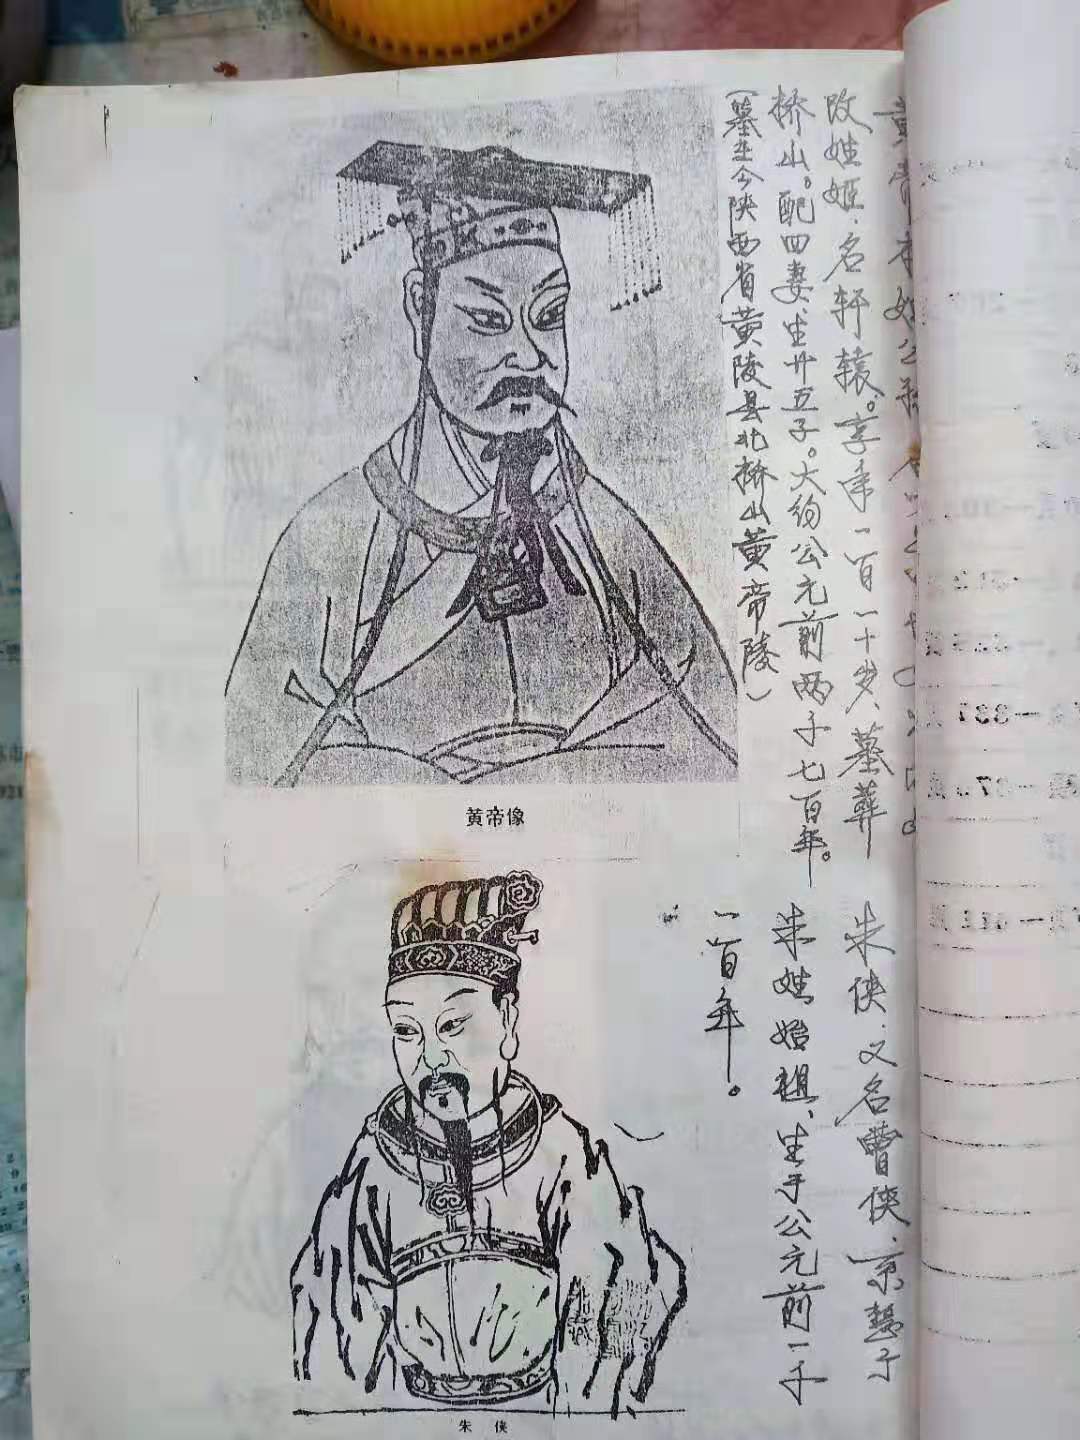 黄帝本姓公孙
改姓姬.名轩辕。享年一百一十岁、墓葬
桥山。配四妻、生廿五子。大约公元前两千七百年。
(墓在今陕西省黄陵县北桥山黄帝陵)
黄帝像
朱侠.又名曹侠、京慧子
朱姓始祖、生于公元前一千
一百年。
朱 侠